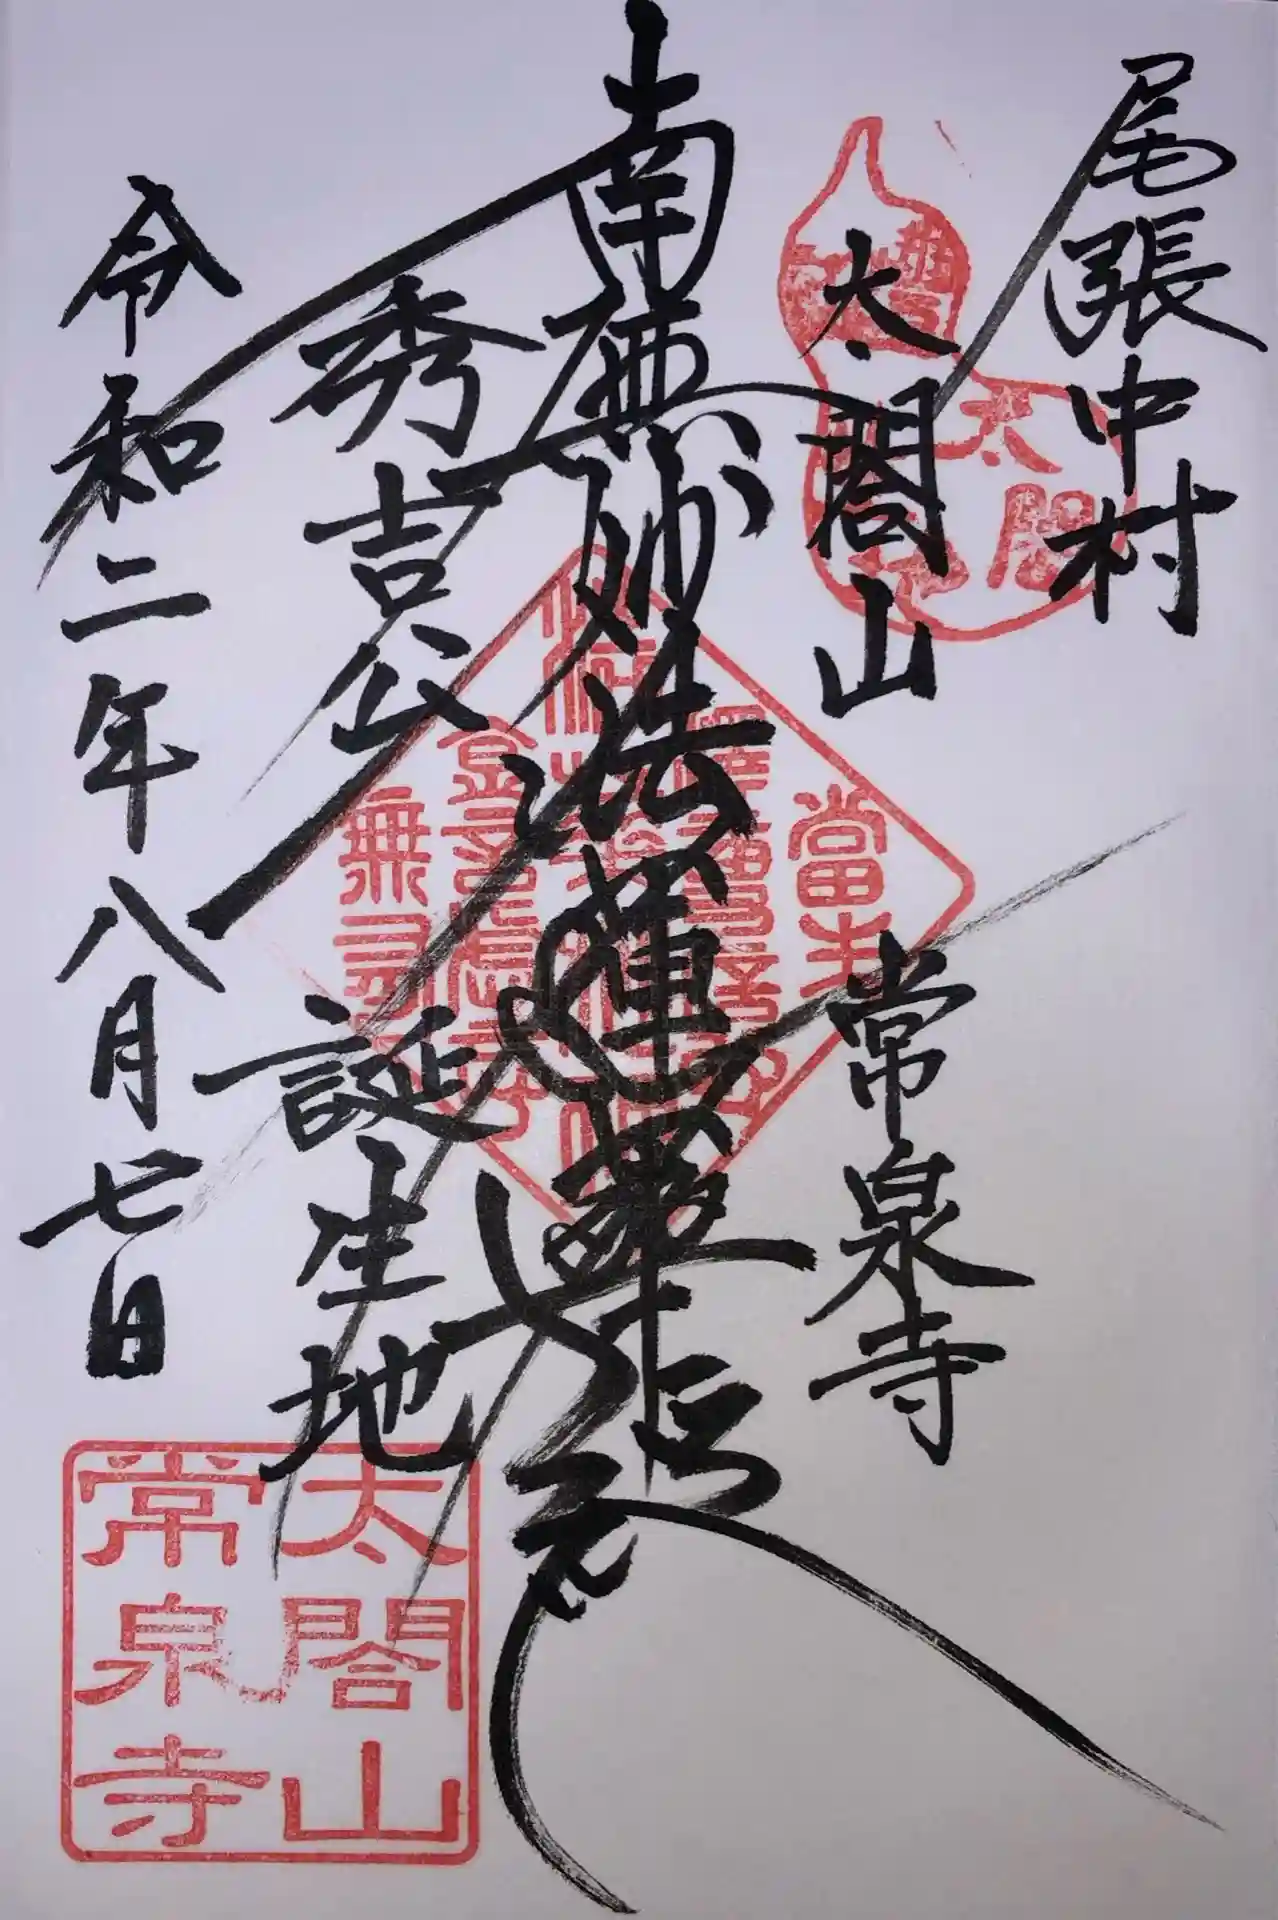 尾張中村
太閤山
常泉寺
南無妙法蓮華経
秀吉公
誕生地
令和二年八月七日
太閤
當
無
太閤山
常泉寺